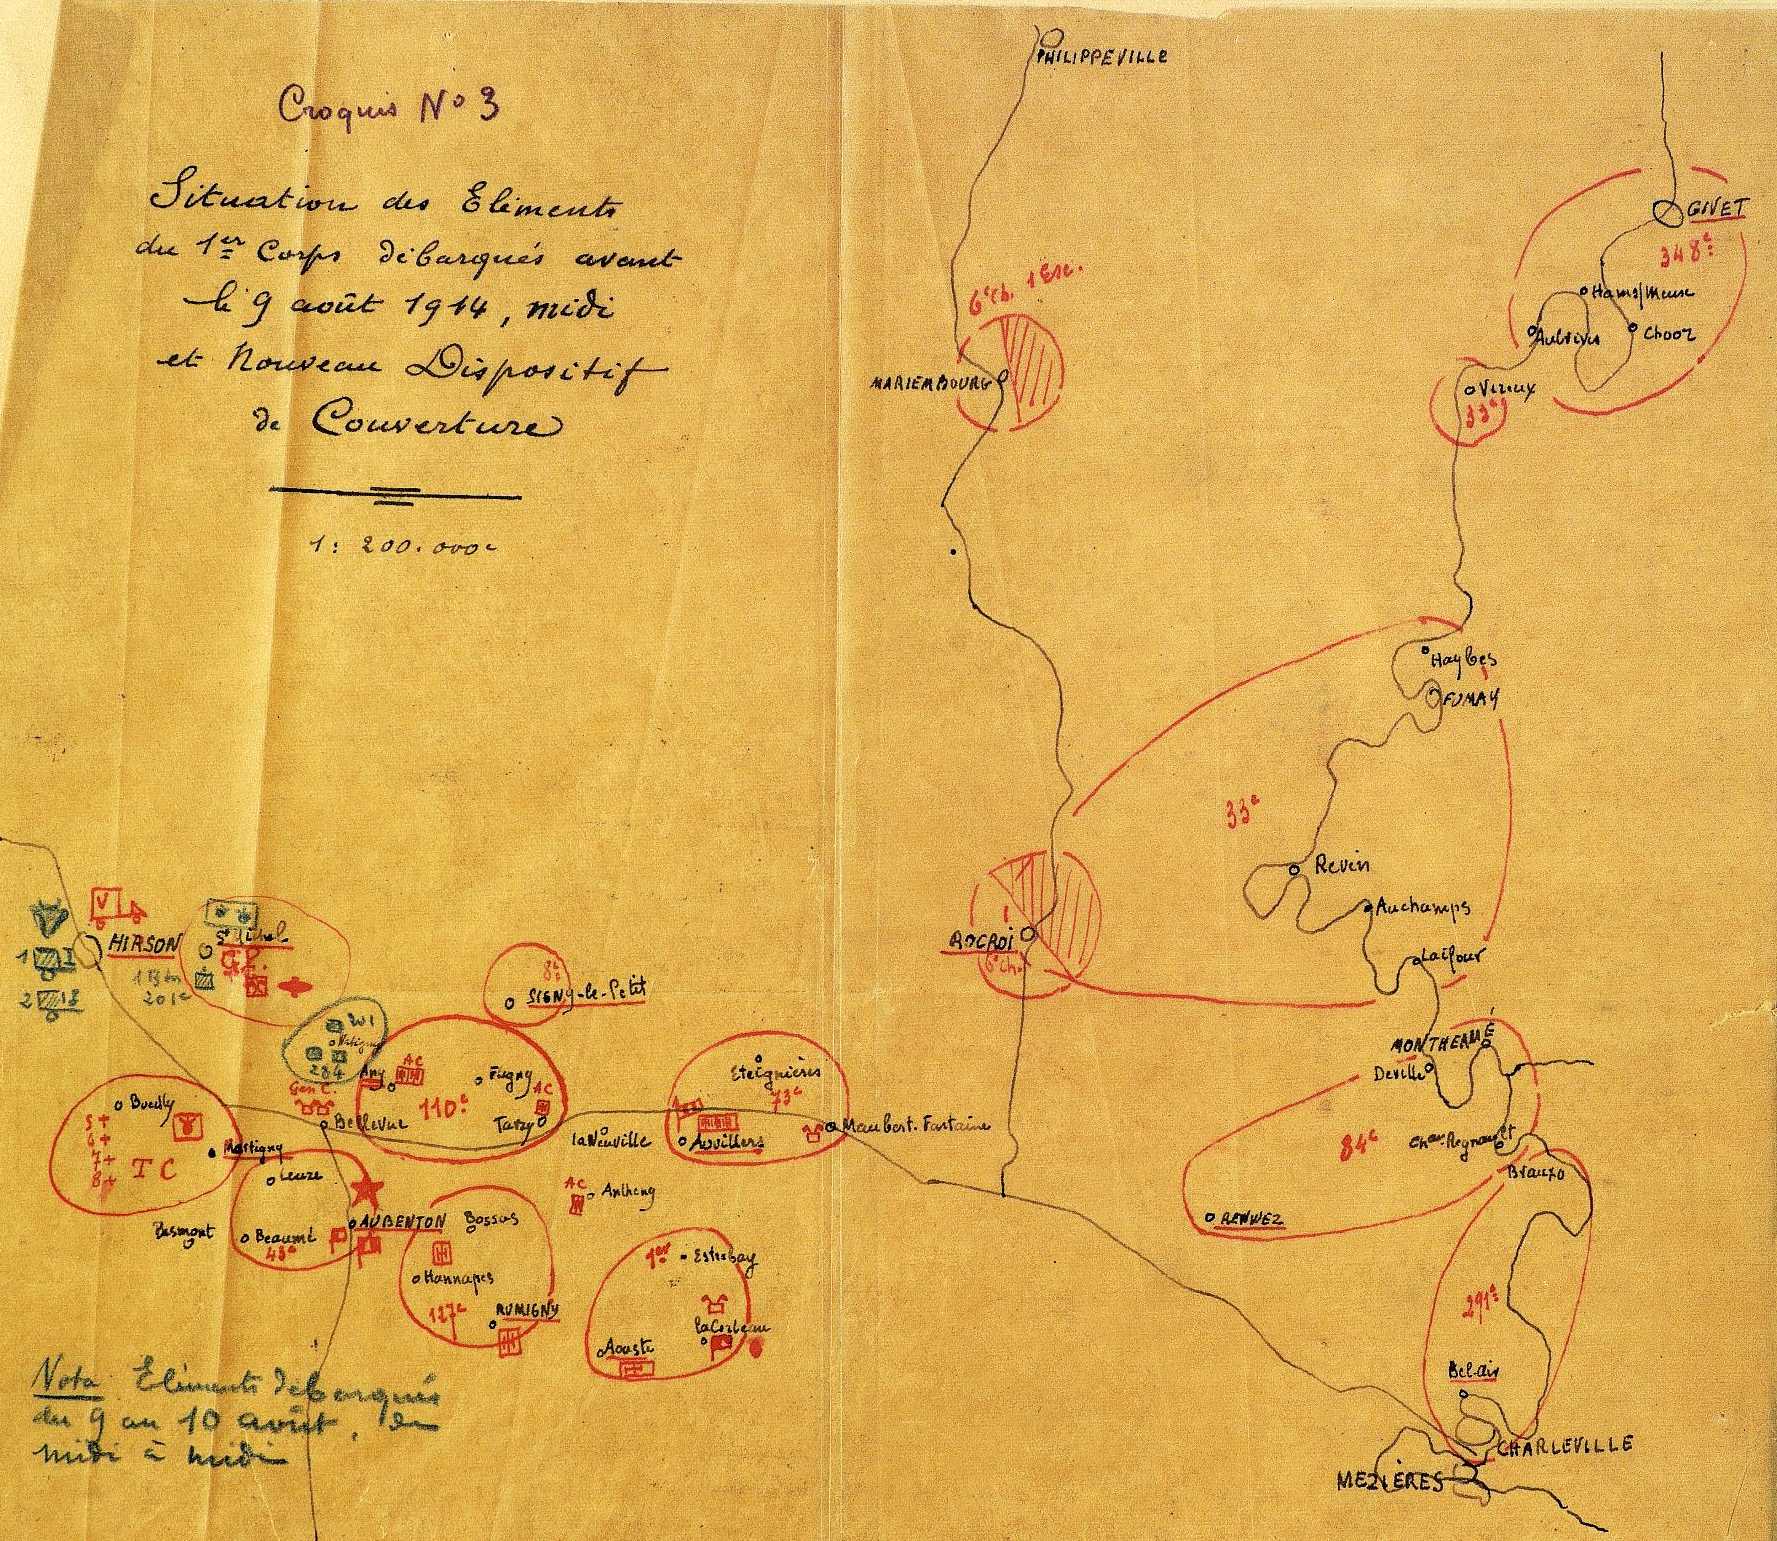 Croquis No 3
Situation des Eléments
du 1er Corps débarqués avant
le 9 août 1914, midi
et Nouveau Dispositif
de Couverture
1: 200.000e
PHILIPPEVILLE
GIVET
348e
Ham s/Meuse
Aubrives
Chooz
6e Ch. 1 Esc.
MARIEMBOURG
Vireux
33e
Haybes
FUMAY
33e
Revin
Auchamps
Laifour
ROCROI
6e Ch.
V
HIRSON
St Michel
1
2
1 Btn
201e
8e
SIGNY-le-Petit
201
284
Any
AC
Fligny
AC
110e
Tarzy
Gén C.
Bellevue
Eteignières
73e
Auvillers
Maubert-Fontaine
la Neuville
MONTHERMÉ
Deville
Chau Regnault
Brauxo
84e
RENWEZ
Bueilly
5+
6+
7+
8+
TC
Martigny
Leuze
Besmont
Beaumé
AUBENTON
Bossus
AC
Antheny
Hannapes
127e
RUMIGNY
1er
Estrebay
Aouste
291e
Bel air
CHARLEVILLE
MEZIÈRES
Nota Eléments débarqués
du 9 au 10 août, de
midi à midi